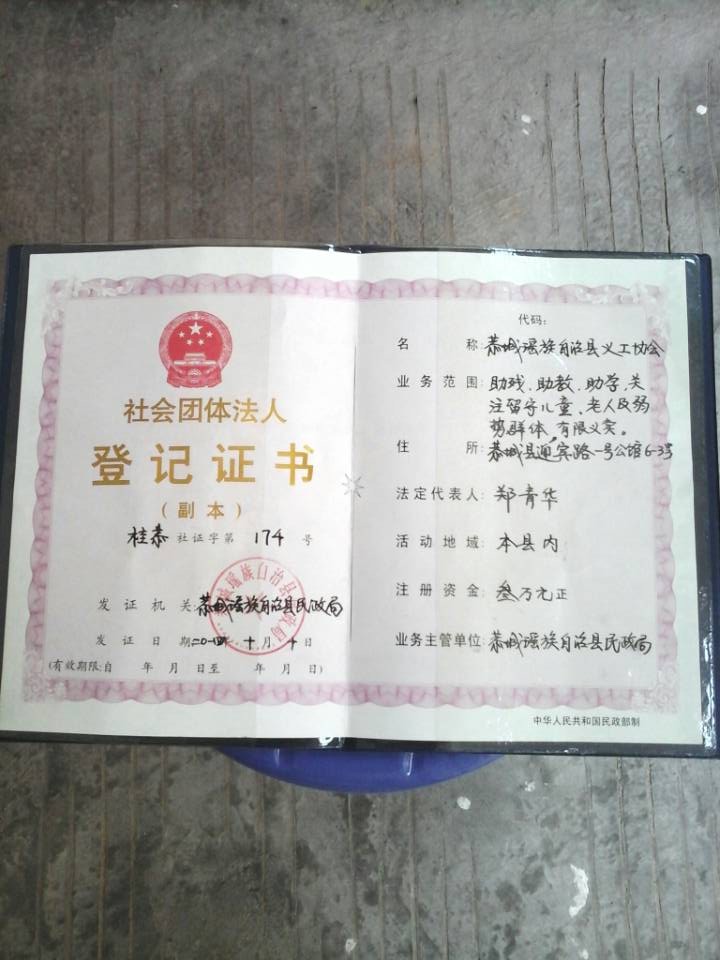 社会团体法人
登记证书
(副本)
桂恭社证字第174号
发证机关:恭城瑶族自治县民政局
发证日期 十月十日
(有效期限:自 年 月 日至 年 月 日)
代码:
名称:恭城瑶族自治县义工协会
业务范围:助残、助教、助学、关
注留守儿童、老人及弱
势群体、有限义卖。
住所:恭城县迎宾路一号公馆6-3号
法定代表人:郑青华
活动地域:本县内
注册资金:叁万元正
业务主管单位:恭城瑶族自治县民政局
中华人民共和国民政部制